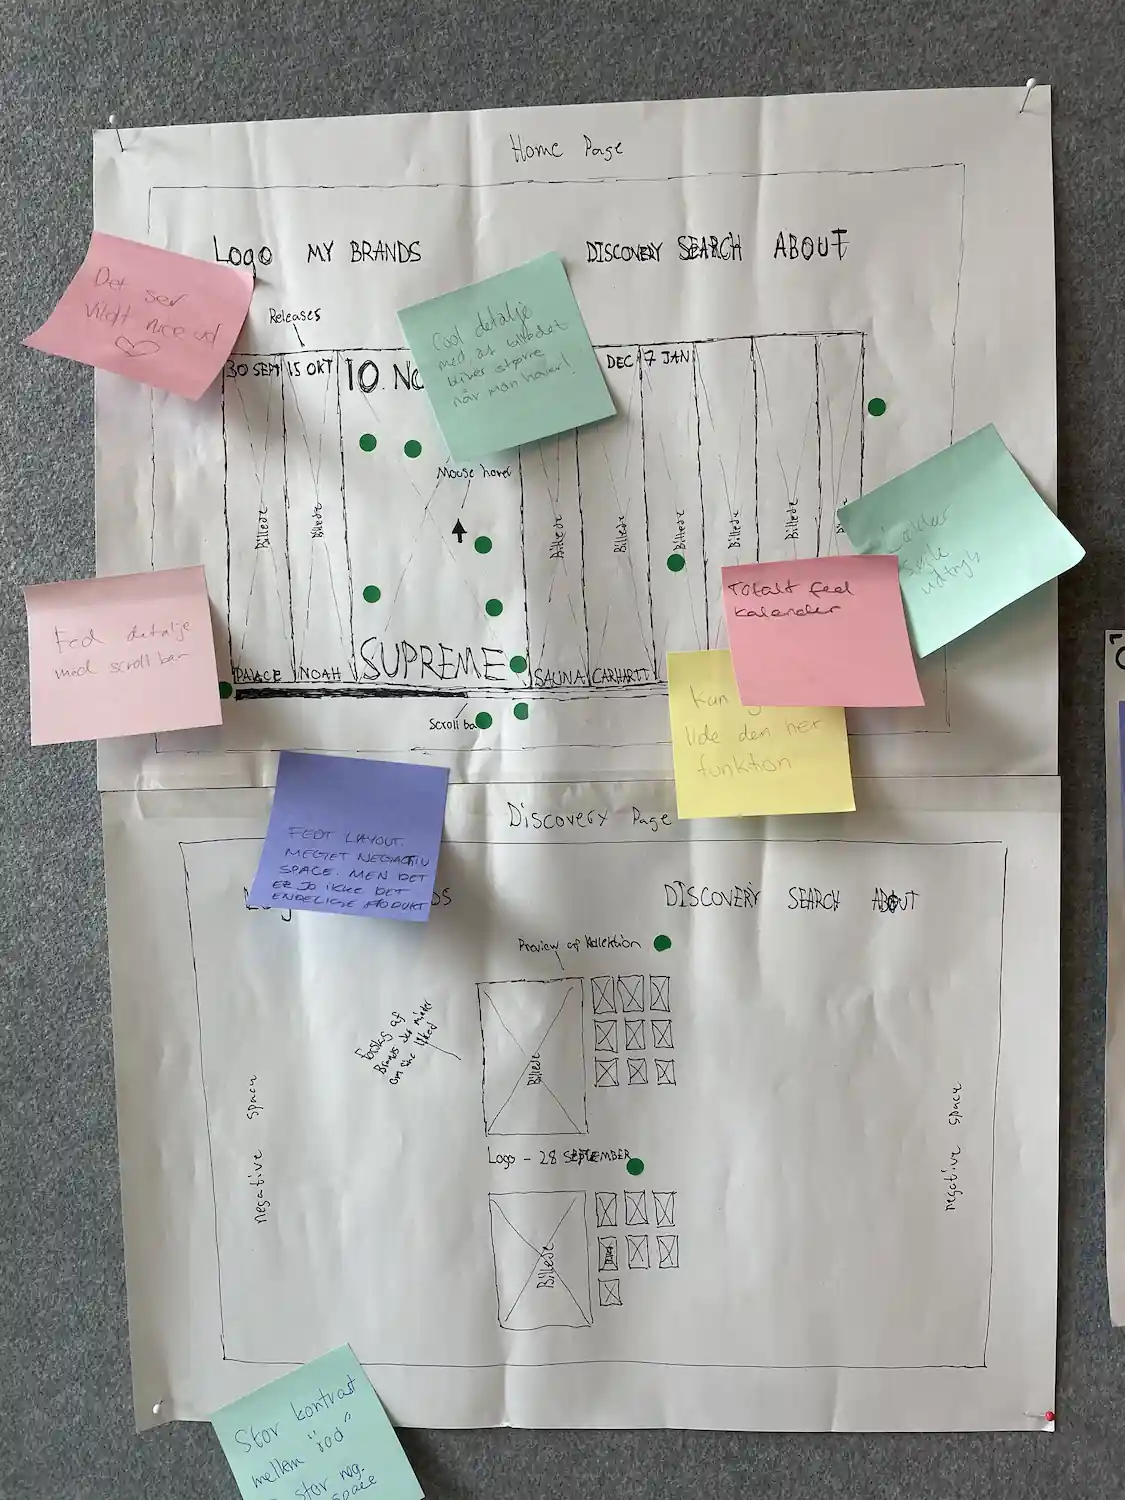 Home Page
Logo MY BRANDS DISCOVERY SEARCH ABOUT
Det ser
vildt nice ud
Cool detalje
med at billedet
bliver større
når man hover!
Releases
30 SEPT 15 OKT 10. NO DEC 7 JAN
Mouse hover
Billede Billede Billede Billede Billede Billede Billede
simple
udtryk
Totalt fed
kalender
Fed detalje
med scroll bar
PALACE NOAH SUPREME SAUNA CARHARTT
Scroll ba
Kan
lide den her
funktion
Discovery Page
FEDT LAYOUT.
MEGET NEGATIV
SPACE. MEN DET
ER JO IKKE DET
ENDELIGE PRODUKT
DS DISCOVERY SEARCH ABOUT
Preview af kollektion
Forslag af
Brands der minder
om the liked
Billede
negative space
negative space
Logo - 28 SEPTEMBER
Billede
Stor kontrast
mellem "rod"
stor neg.
space